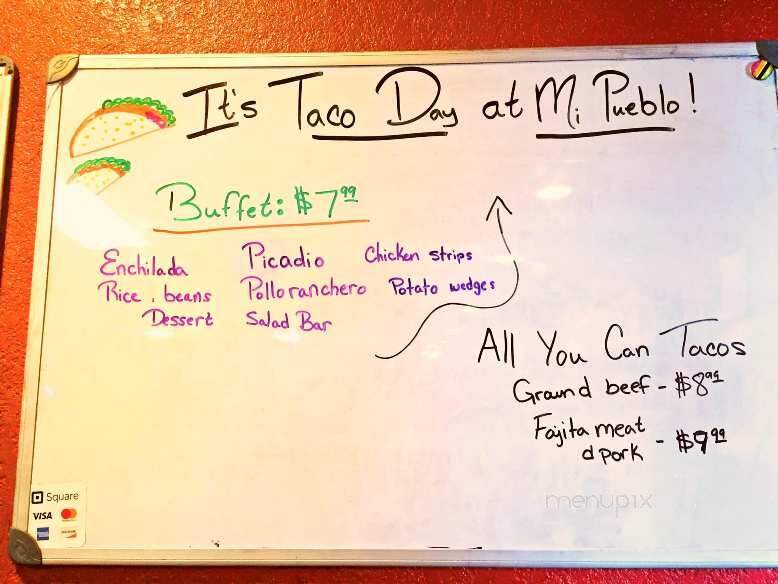 It's Taco Day at Mi Pueblo!
Buffet: $7.99
Enchilada Picadio Chicken strips
Rice, beans Pollo ranchero Potato wedges
Dessert Salad Bar
All You Can Tacos
Ground beef - $8.99
Fajita meat
d pork - $9.99
Square
VISA
menupix